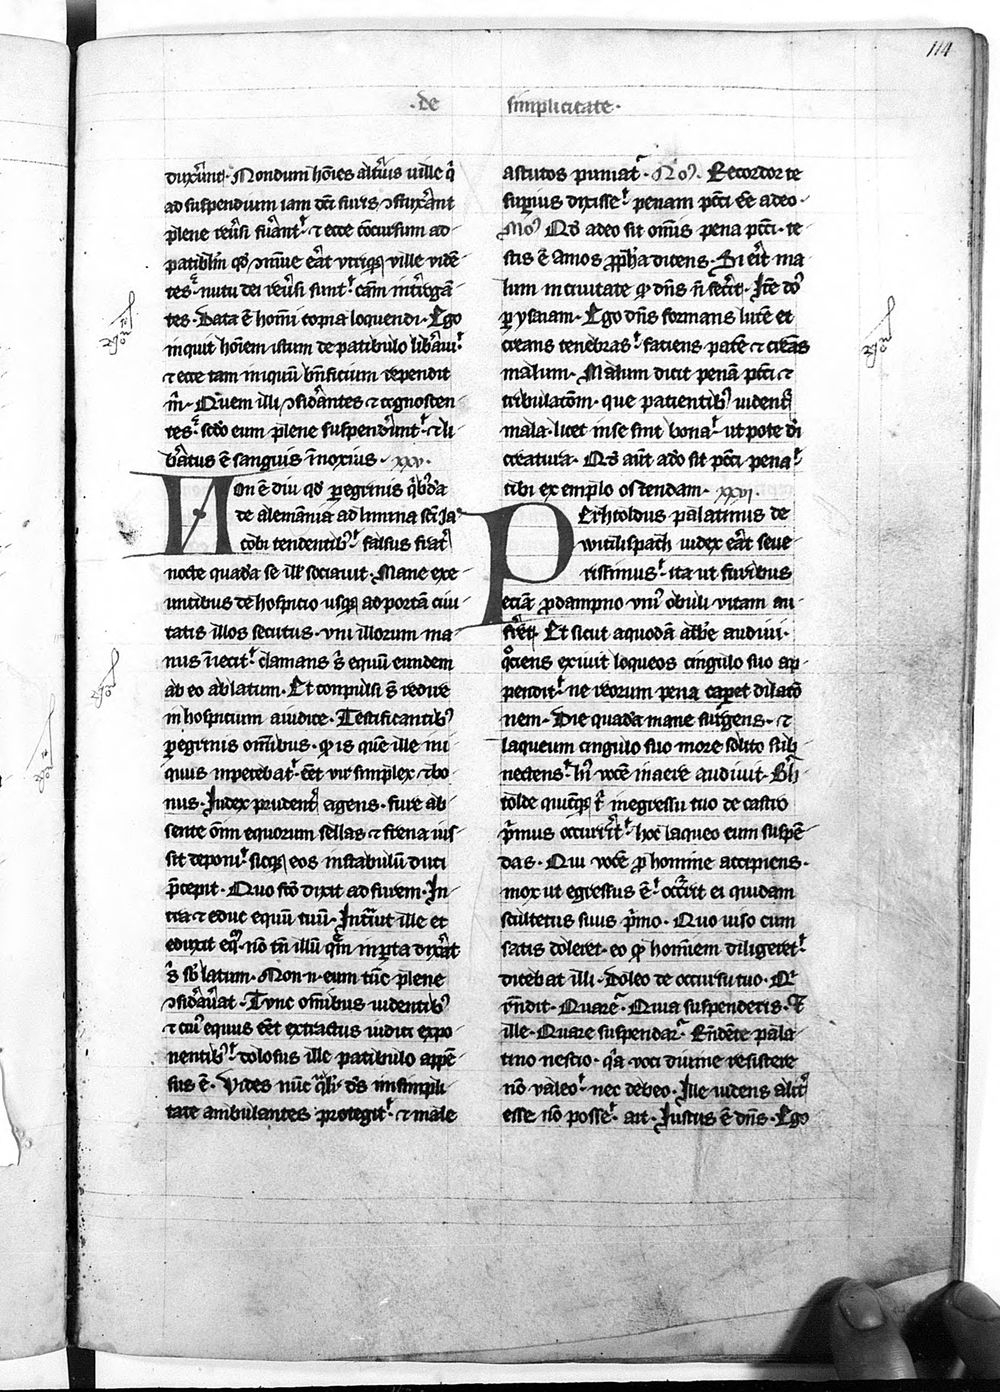 114
·de simplicitate·
duxerunt. Nondum ho͞ies alterius ville q̇
ad suspendium iam dc̄i furis ↄfluxerant
plene reuersi fuerant. ⁊ ecce c̄cursum ad
patiblm̄ qd̓ ↄmune erat vtriq; ville vidē
tes. nutu dei reuersi sunt. cām int̓rogā
tes. Data ē homī copia loquendi. Ego
inquit hoīem istum de patibulo liberaui.
⁊ ecce tam iniquū bn̄ficium rependit
m̄. Quem illi ↄsiderantes ⁊ cognoscen
tes. scdo eum plene suspenderunt. ⁊ li
beratus ē sanguis innoxius. xxv.
Non ē diu qd̓ peregrinis qi̓busda
de alemānia ad limina sc̄i Ja
cobi tendentib; falsus frater
nocte quada se illis sociauit. Mane exe
untibus de hospicio usq; ad portā ciui
tatis illos secutus. vni illorum ma
nus iniecit. clamans s̄ equū eundem
ab eo ablatum. Et conpulsi s̄ redire
in hospicium a iudice. Testificantib;
peregrinis omībus. qd is quē ille ini
quus inpetebat. eēt vir simplex ⁊ bo
nus. Iudex prudent̓ agens. fure ab
sente om̄m equorum sellas ⁊ frena ius
sit deponi. sicq; eos in stabulū duci
p̄cepit. Quo fc̄o dixit ad furem. In
tra ⁊ educ equū tuū. Intrauit ille et
eduxit eq̄. nō tn̄ illū quem inporta dixerat
s̄ sblatum. Non n̄ eum tūc plene
ↄsiderauerat. Tunc omībus uidentib;
⁊ cui̓ equus eēt extractus iudici expo
nentib;. dolosus ille patibulo appē
sus ē. Vides nūc qualit̓ ds̄ in simpli
tate ambulantes protegit. ⁊ male
astutos puniat. No̓. Recordor te
superius dixisse. penam pc̄ci eē a deo.
Mo̓ Qd̓ a deo sit omīs pena pc̄ci. te
stis ē amos ppha dicens. Si erit ma
lum in ciuitate qd̓ dn̄s n̄ fecerit. Itē do̓
per ysaiam. Ego dn̄s formans lucē et
creans tenebras. faciens pacē ⁊ creās
malum. Malum dicit penā pc̄ci ⁊
tribulacōm. que patientib; uident̓
mala. licet in se sint bona. ut pote di̓
creatura. Qd̓ aūt a do̓ sit pc̄ci pena.
tibi exemplo ostendam. xxvi.
Perhtoldus palatinus de
witilispach iudex erat seue
rissimus. ita ut furibus
eciā pro dampno vni̓ obuli vitam au
ferret. Et sicut a quodā abbe audiui.
quociens exiuit laqueos cingulo suo ap
pendit. ne reorum pena caperet dilacō
nem. Die quada mane surgens. ⁊
laqueum cingulo suo more solito sub
nectens. h̄i vocē in aere audiuit. Bh
tolde quicūq; t̄ in egressu tuo de castro
primus occurrerit. hoc laqueo eum suspē
das. Qui vocē pro homine accipiens.
mox ut egressus ē. occurrit ei quidam
scultetus suus primo. Quo uiso cum
satis doleret. eo qd hominem diligeret.
dicebat illi. Doleo de occursu tuo. Qi
rn̄dit. Quare. Quia suspenderis. Et
ille. Quare suspendar. Rn̄dēte pala
tino nescio. quia voci diuine resistere
nō valeo. nec debeo. Ille uidens aliter
esse nō posse. ait. Iustus ē dn̄s. Ego